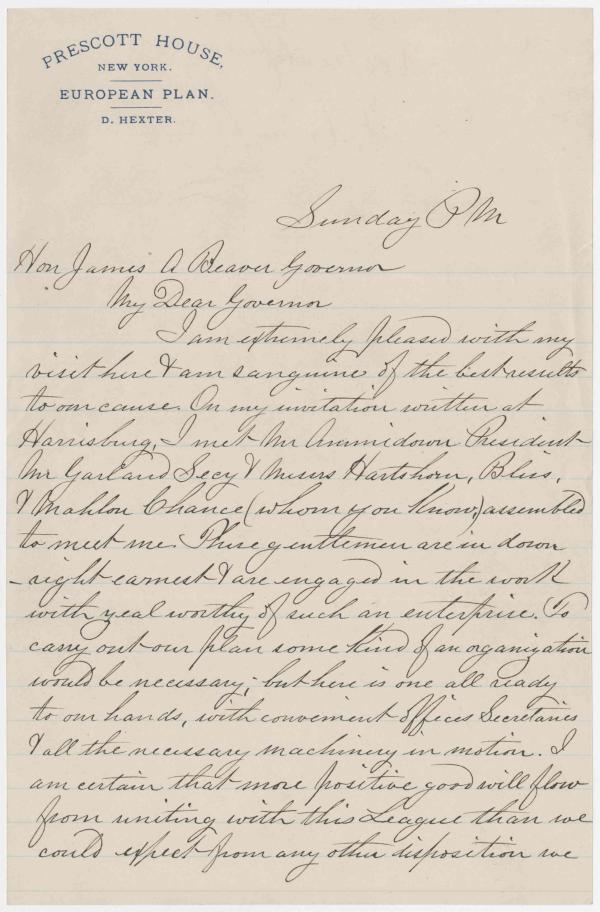 PRESCOTT HOUSE,
NEW YORK.
EUROPEAN PLAN.
D. HEXTER.
Sunday P M
Hon James A Beaver Governor
My Dear Governor
I am extremely pleased with my
visit here & am sanguine of the best results
to our cause. On my invitation written at
Harrisburg, I met Mr Ammidown President
Mr Garland Secy & Messrs Hartshorn, Bliss,
& Mahlon Chance (whom you know,) assembled
to meet me. These gentlemen are in down
-right earnest & are engaged in the work
with zeal worthy of such an enterprise. To
carry out our plan some kind of an organization
would be necessary; but here is one all ready
to our hands, with convenient offices Secretaries
& all the necessary machinery in motion. I
am certain that more positive good will flow
from uniting with this League than we
could expect from any other disposition we